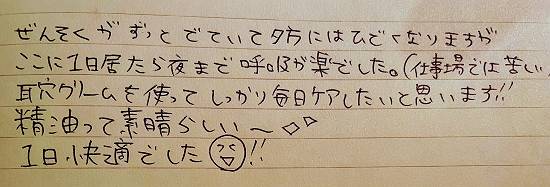 ぜんそくがずっとでていて夕方にはひどくなりますが
ここに1日居たら夜まで呼吸が楽でした。(仕事場では苦しい
耳穴クリームを使ってしっかり毎日ケアしたいと思います!!
精油って素晴らしい〜◇◇
1日快適でした!!